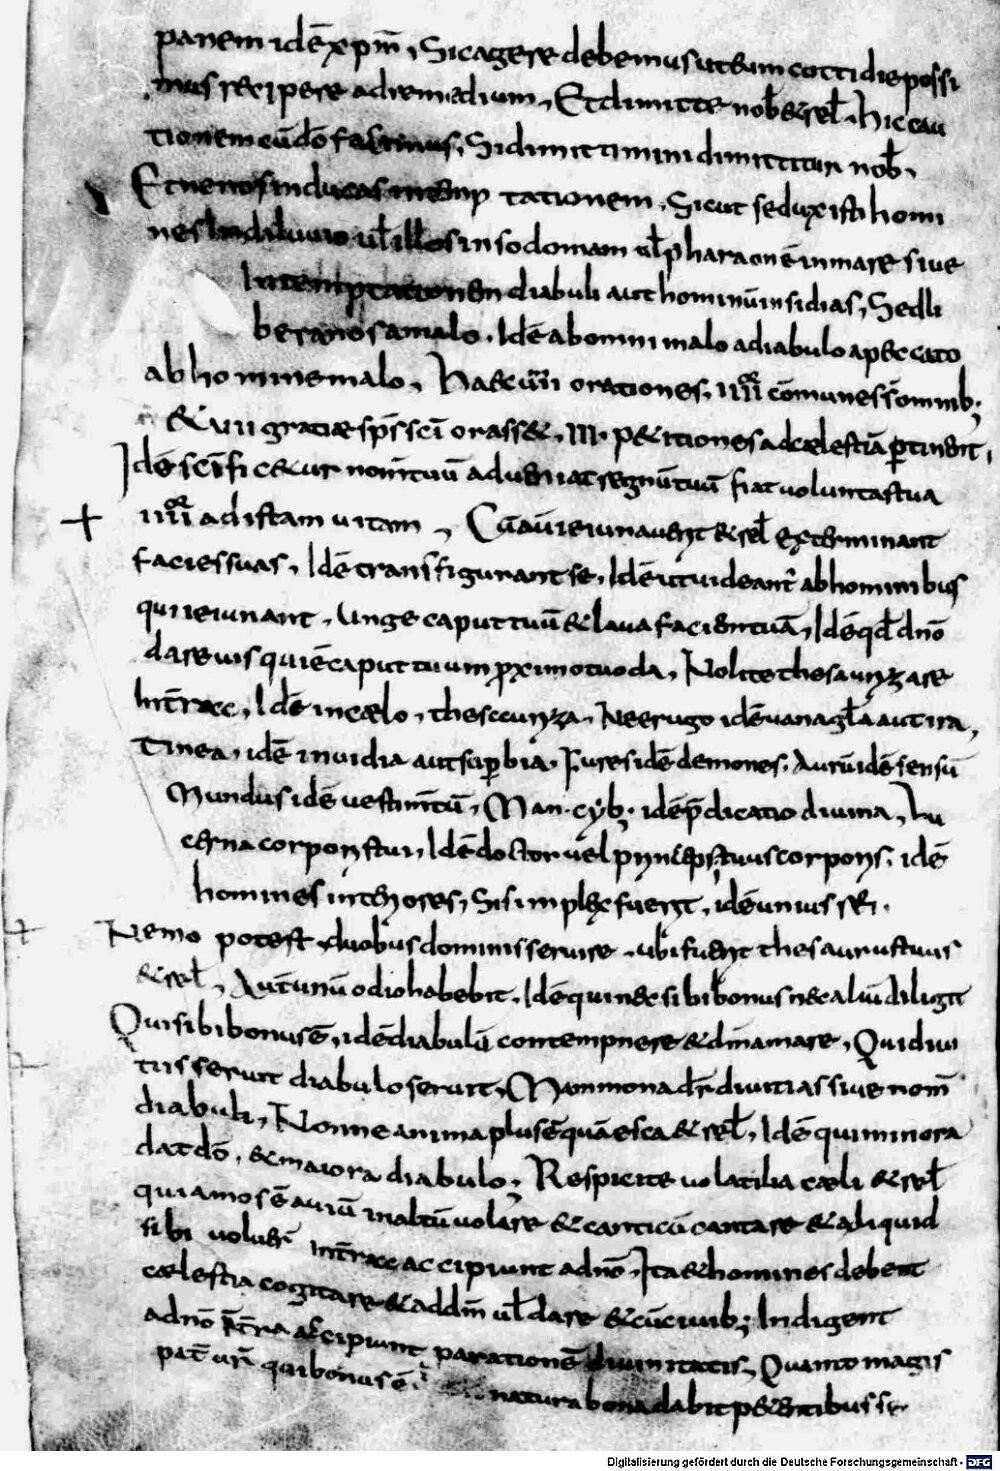 panem idē xpm̄, Sic agere debemus ut eum cottidie possi
mus recipere ad remedium, Et dimitte nob̄ & rel̄. Hic cau
tionem cū dō facimus, Si dimittimini dimittitur nob̄,
Et ne nos inducas in temp tationem. Sicut seduxisti homi
nes In diluuio ul̄ illos in sodomam ul̄ pharaonē in mare siue
In temptationem diabuli aut hominū insidias, Sed li
bera nos a malo. Idē ab omni malo a diabulo a peccato
ab homine malo, orationes. IIII cōmunes sōnnib;
& VII gratiae sp̄s sc̄i orass&, III. p&itiones ad caelestiā pertinent,
Idē sc̄ific&ur nom̄ tuū adueniat regnū tuū fiat uoluntas tua
IIII ad istam uitam, Cū aū ieiunauerit & rel̄ exterminant
facies suas, Idē transfigurant se, Idē ut uideant̄ ab hominibus
qui ieiunant. Unge caput tuū & laua faciem tuā, Idē qd̄ dn̄o
dare uis qui ē caput tuum proximo tuo da, Nolite thesaurizare
In t̄rae, Idē in caelo, thesauriza, Ne erugo idē uana gl̄a aut ira,
Tinea, idē inuidia aut superbia. Fures idē demones. Aurū idē sensū
Mundus idē uestim̄tū, idē p̄dicatio diuina, Lu
cerna corporis tui, Idē doctor uel princeps tuus corporis. idē
homines interiores, Si simplex fuerit, idē unius rei.
Nemo potest duobus dominis seruire. ubi fuerit thesaurus tuus
& rel̄, Aut unū odio habebit, Idē qui nec sibi bonus nec aliū diligit
Qui sibi bonus ē, idē diabulū contempnere & dm̄ amare, Qui diui
tiis seruit diabulo seruit, Mammona dr̄ diuitias siue nom̄
diabuli, Nonne anima plus ē quā esca & rel̄, Idē qui minora
dat dō, & maiora diabulo, Respicite uolatilia caeli & rel̄
quia mos ē auiū in altū uolare & canticū cantare & aliquid
sibi uoluer̄ In t̄rae accipiunt a dn̄o, Ita & homines debent
caelestia cogitare & ad dm̄ ul̄ dare & cū ciuib; Indigent
a dn̄o accipiunt parationē diuinitatis, Quanto magis
pat̄ ur̄ qui bonus ē natura bona dabit petentibus se.
Digitalisierung gefördert durch die Deutsche Forschungsgemeinschaft - DFG